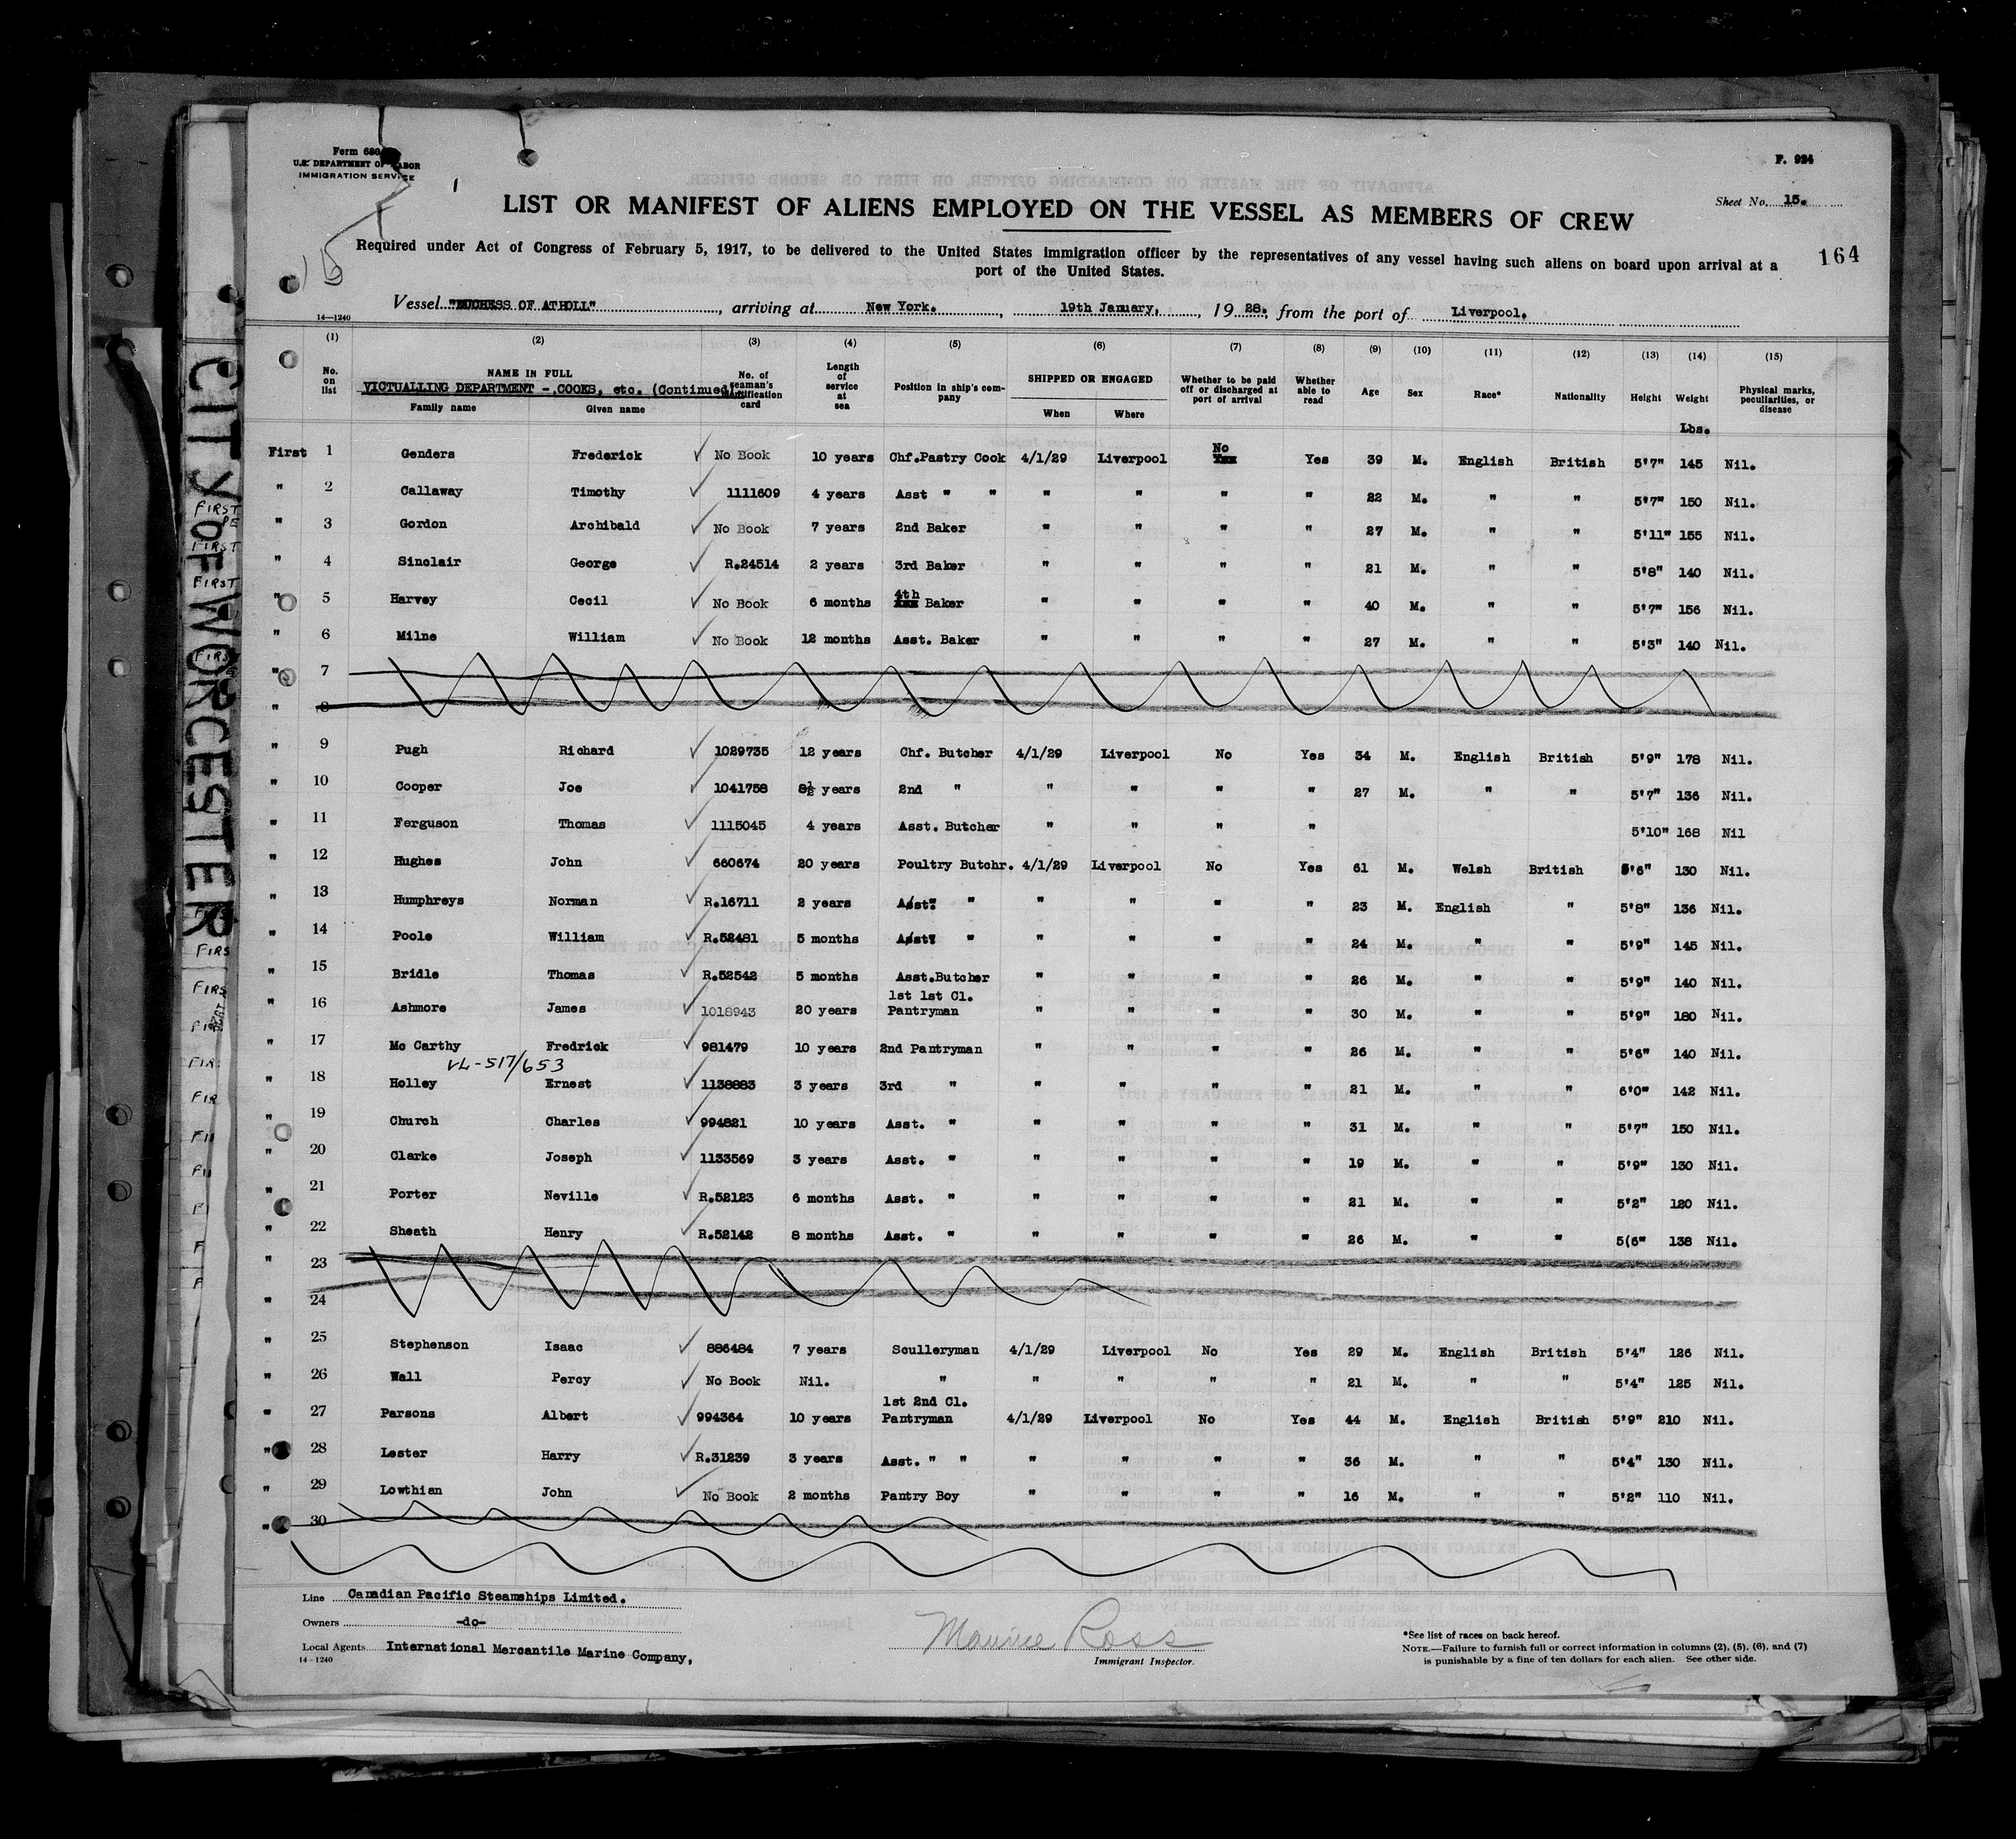 Form 680
U.S. DEPARTMENT OF LABOR
IMMIGRATION SERVICE
F. 924
Sheet No. 15.
LIST OR MANIFEST OF ALIENS EMPLOYED ON THE VESSEL AS MEMBERS OF CREW
164
15
Required under Act of Congress of February 5, 1917, to be delivered to the United States immigration officer by the representatives of any vessel having such aliens on board upon arrival at a
port of the United States.
Vessel "DUCHESS OF ATHOLL", arriving at New York., 19th January, , 19 28, from the port of Liverpool.
14—1240
(1) (2) (3) (4) (5) (6) (7) (8) (9) (10) (11) (12) (13) (14) (15)
No. on list
NAME IN FULL
VICTUALLING DEPARTMENT - COOKS, etc. (Continued)
Family name Given name
No. of seaman's identification card
Length of service at sea
Position in ship's company
SHIPPED OR ENGAGED
When Where
Whether to be paid off or discharged at port of arrival
Whether able to read
Age
Sex
Race*
Nationality
Height
Weight
Physical marks, peculiarities, or disease
Lbs.
First 1 Genders Frederick No Book 10 years Chf.Pastry Cook 4/1/29 Liverpool No Yes 39 M. English British 5'7" 145 Nil.
" 2 Callaway Timothy 1111609 4 years Asst " " " " " " 22 M. " " 5'7" 150 Nil.
" 3 Gordon Archibald No Book 7 years 2nd Baker " " " " 27 M. " " 5'11" 155 Nil.
" 4 Sinclair George R.24514 2 years 3rd Baker " " " " 21 M. " " 5'8" 140 Nil.
" 5 Harvey Cecil No Book 6 months 4th Baker " " " " 40 M. " " 5'7" 156 Nil.
" 6 Milne William No Book 12 months Asst. Baker " " " " 27 M. " " 5'3" 140 Nil.
" 7
" 8
" 9 Pugh Richard 1029735 12 years Chf. Butcher 4/1/29 Liverpool No Yes 34 M. English British 5'9" 178 Nil.
" 10 Cooper Joe 1041758 8½ years 2nd " " " " " 27 M. " " 5'7" 136 Nil.
" 11 Ferguson Thomas 1115045 4 years Asst. Butcher " " " " 5'10" 168 Nil
" 12 Hughes John 660674 20 years Poultry Butchr. 4/1/29 Liverpool No Yes 61 M. Welsh British 5'6" 130 Nil.
" 13 Humphreys Norman R.16711 2 years Asst. " " " " " 23 M. English " 5'8" 136 Nil.
" 14 Poole William R.52481 5 months Asst. " " " " " 24 M. " " 5'9" 145 Nil.
" 15 Bridle Thomas R.52542 5 months Asst.Butcher " " " " 26 M. " " 5'9" 140 Nil.
" 16 Ashmore James 1018943 20 years 1st 1st Cl. Pantryman " " " " 30 M. " " 5'9" 180 Nil.
" 17 Mc Carthy Fredrick 981479 10 years 2nd Pantryman " " " " 26 M. " " 5'6" 140 Nil.
VL-517/653
" 18 Holley Ernest 1138883 3 years 3rd " " " " " 21 M. " " 6'0" 142 Nil.
" 19 Church Charles 994821 10 years Asst. " " " " " 31 M. " " 5'7" 150 Nil.
" 20 Clarke Joseph 1133569 3 years Asst. " " " " " 19 M. " " 5'9" 130 Nil.
" 21 Porter Neville R.52123 6 months Asst. " " " " " 21 M. " " 5'2" 120 Nil.
" 22 Sheath Henry R.52142 8 months Asst. " " " " " 26 M. " " 5(6" 138 Nil.
" 23
" 24
" 25 Stephenson Isaac 886484 7 years Sculleryman 4/1/29 Liverpool No Yes 29 M. English British 5'4" 126 Nil.
" 26 Wall Percy No Book Nil. " " " " " 21 M. " " 5'4" 125 Nil.
" 27 Parsons Albert 994364 10 years 1st 2nd Cl. Pantryman 4/1/29 Liverpool No Yes 44 M. English British 5'9" 210 Nil.
" 28 Lester Harry R.31239 3 years Asst. " " " " " " 36 M. " " 5'4" 130 Nil.
" 29 Lowthian John No Book 2 months Pantry Boy " " " " 16 M. " " 5'2" 110 Nil.
" 30
Line Canadian Pacific Steamships Limited.
Owners -do-
Local Agents International Mercantile Marine Company,
14-1240
Maurice Ross
Immigrant Inspector.
*See list of races on back hereof.
NOTE.—Failure to furnish full or correct information in columns (2), (5), (6), and (7)
is punishable by a fine of ten dollars for each alien. See other side.
CITY OF WORCESTER
FIRST
FIRST
FIRST